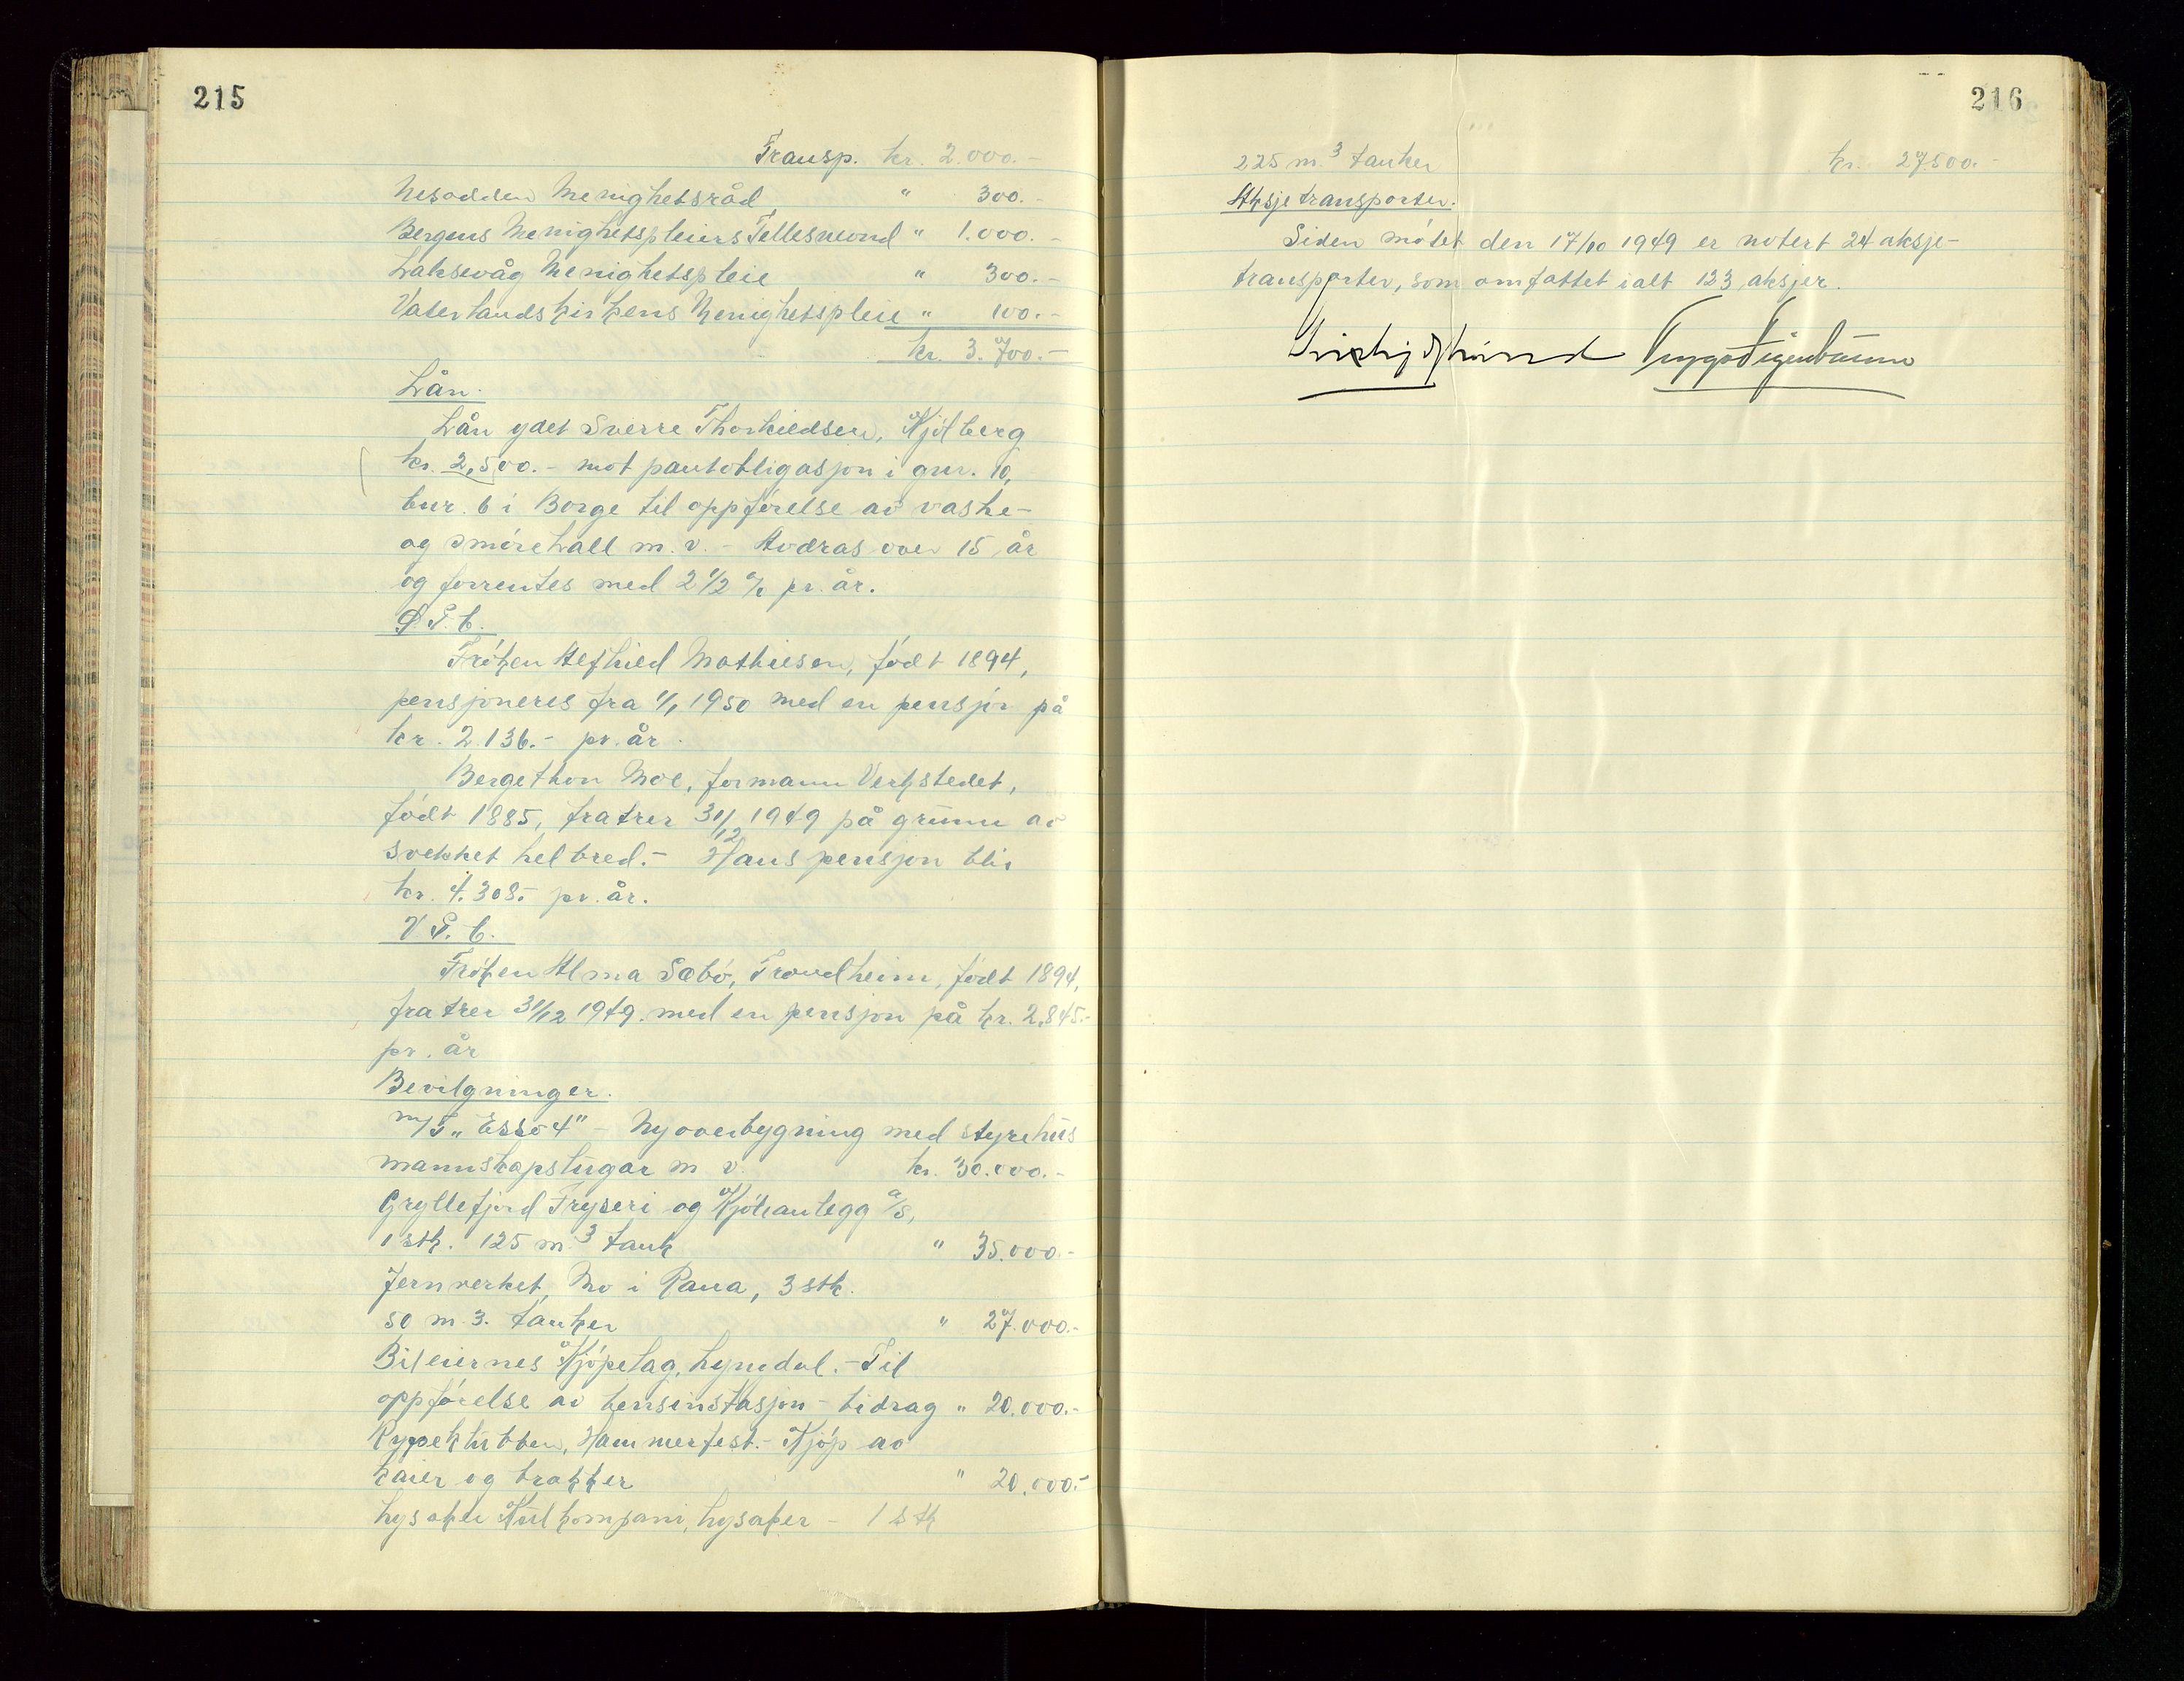 215
Transp. kr. 2.000.-
Nesodden Menighetsråd, " 300.-
Bergens Menighetspleiers Fellesråd " 1.000.-
Laksevåg Menighetspleie " 300.-
Vaterlandskirkens Menighetspleie " 100.-
kr. 3.700.-
Lån.
Lån ydet Sverre Thorkildsen, Kjølberg
kr. 2,500.- mot pantobligasjon i gnr. 10,
bnr. 6 i Borge til oppførelse av vaske-
og smørehall m.v. - Avdras over 15 år
og forrentes med 2 1/2 % pr. år.
Ø. P. C.
Frøken Alfhild Mathiesen, født 1894,
pensjoneres fra 1/1 1950 med en pensjon på
kr. 2.136.- pr. år.
Bergethon Moe, formann Verkstedet,
født 1885, fratrer 31/12 1949 på grunn av
svekket helbred.- Hans pensjon blir
kr. 4.308.- pr. år.
V. P. C.
Frøken Alma Sæbø, Trondheim, født 1894,
fratrer 31/12 1949 med en pensjon på kr. 2.845.-
pr. år
Bevilgninger.
m/T „Esso 4" - Ny overbygning med styrehus
mannskapslugar m v. kr. 30.000.-
Gryllefjord Fryseri og Kjøleanlegg a/s,
1 stk. 125 m.3 tank " 35.000.-
Jernverket, Mo i Rana, 3 stk.
50 m. 3. tanker " 27.000.-
Bileiernes Kjøpelag, Lyngdal. - Til
oppførelse av bensinstasjon - bidrag " 20.000.-
Rypeklubben, Hammerfest. - Kjøp av
kaier og brakker " 20.000.-
Lysaker Kullkompani, Lysaker - 1 stk
216
225 m.3 tanker kr. 27500.-
Aksjetransporter.
Siden møtet den 17/10 1949 er notert 24 aksje-
transporter, som omfattet ialt 123 aksjer.